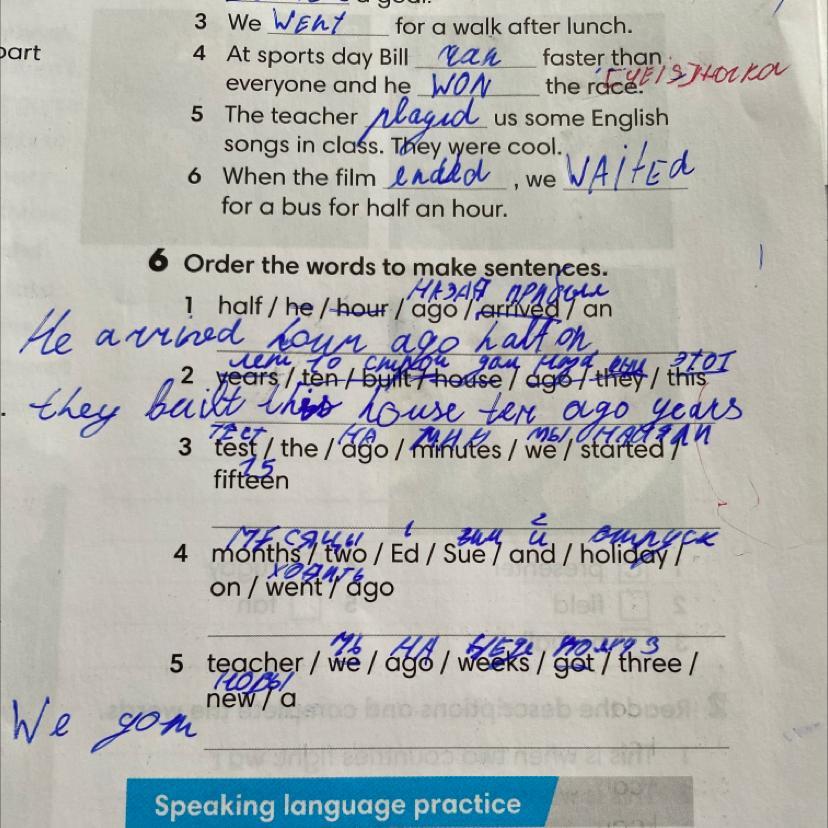 a goal.
3 We WENt for a walk after lunch.
part
4 At sports day Bill ran faster than
everyone and he WON the race.
5 The teacher played us some English
songs in class. They were cool.
6 When the film ended, we WAitEd
for a bus for half an hour.
6 Order the words to make sentences.
НАЗАД
1 half / he / hour / ago / arrived / an
He arrived hour ago half an
лет 10 дом назад они ЭТОТ
2 years / ten / built / house / ago / they / this
they built this house ten ago years
ТЕСТ МИН МЫ НАЧАЛИ
3 test / the / ago / minutes / we / started /
15
fifteen
МЕСЯЦЫ 1 2 и отпуск
4 months / two / Ed / Sue / and / holiday /
ХОДИТЬ
on / went / ago
5 teacher / we / ago / weeks / got / three /
new / a
We
Speaking language practice